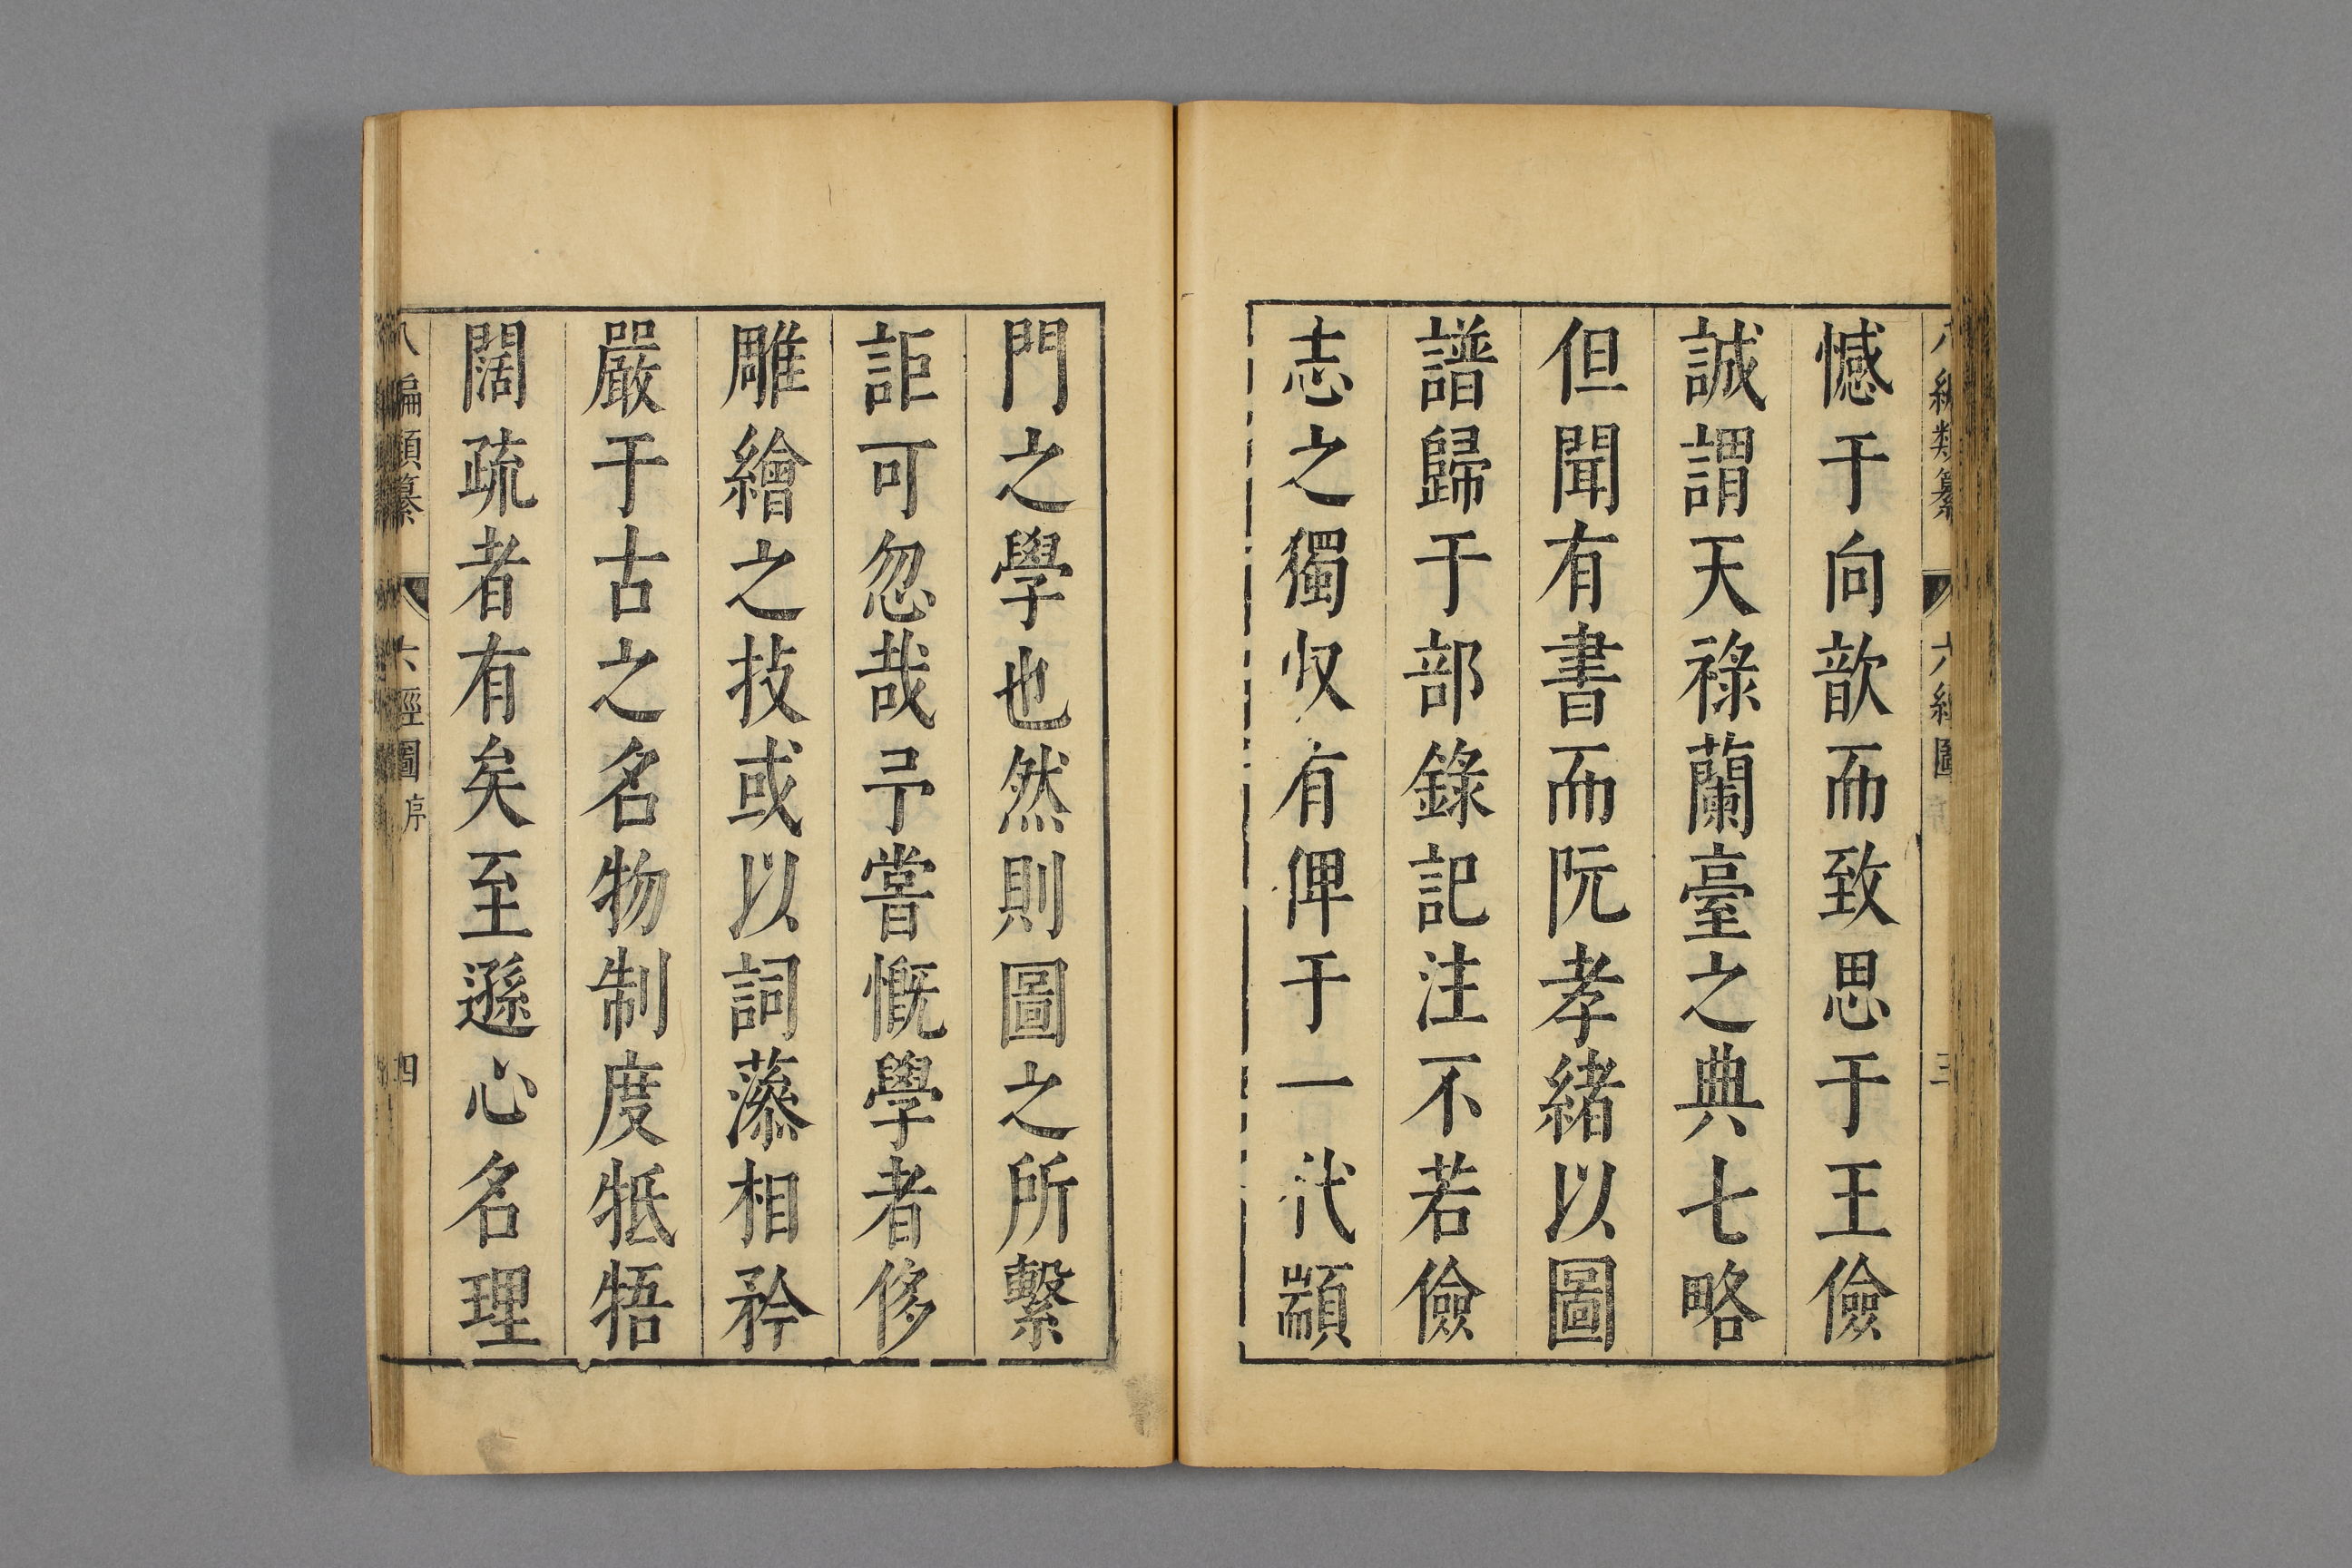 八編類纂 六經圖 序 三
憾于向歆而致思于王儉
誠謂天祿蘭臺之典七略
但聞有書而阮孝緒以圖
譜歸于部錄記注不若儉
志之獨収有俾于一代顓
門之學也然則圖之所繫
詎可忽哉予嘗慨學者侈
雕繪之技或以詞藻相矜
嚴于古之名物制度牴牾
闊疏者有矣至遜心名理
八編類纂 六經圖 序 四